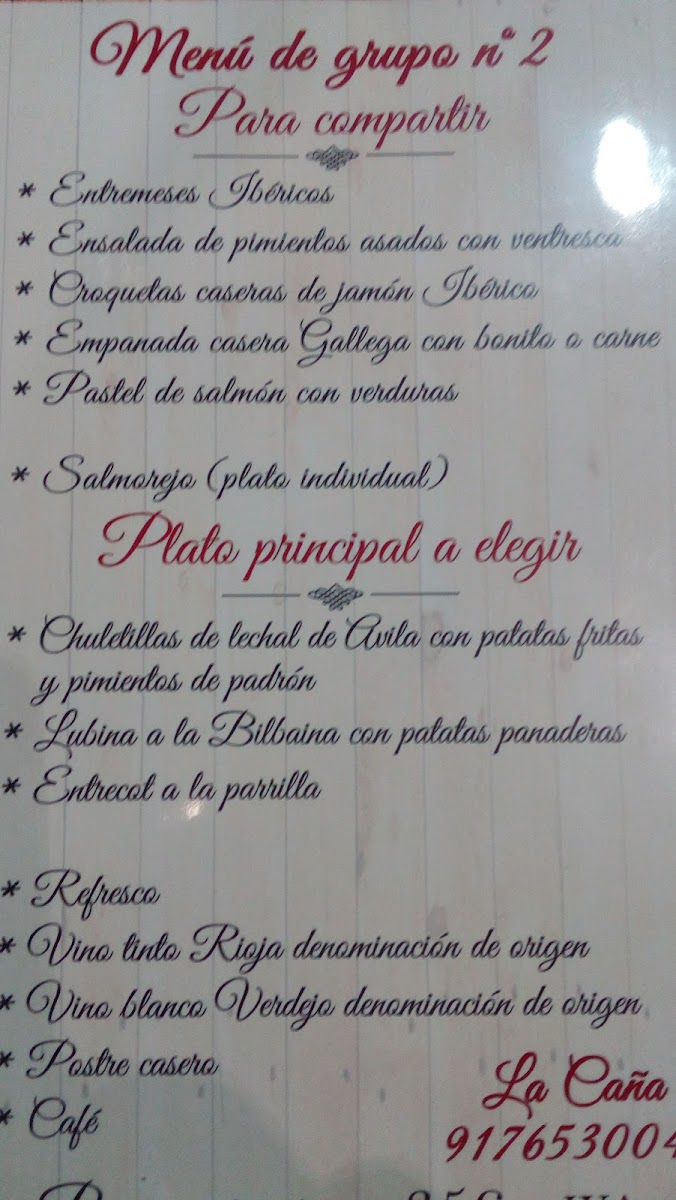 Menú de grupo nº 2
Para compartir
* Entremeses Ibéricos
* Ensalada de pimientos asados con ventresca
* Croquetas caseras de jamón Ibérico
* Empanada casera Gallega con bonito o carne
* Pastel de salmón con verduras
* Salmorejo (plato individual)
Plato principal a elegir
* Chuletillas de lechal de Avila con patatas fritas
y pimientos de padrón
* Lubina a la Bilbaina con patatas panaderas
* Entrecot a la parrilla
* Refresco
* Vino tinto Rioja denominación de origen
* Vino blanco Verdejo denominación de origen
* Postre casero
* Café
La Caña
917653004